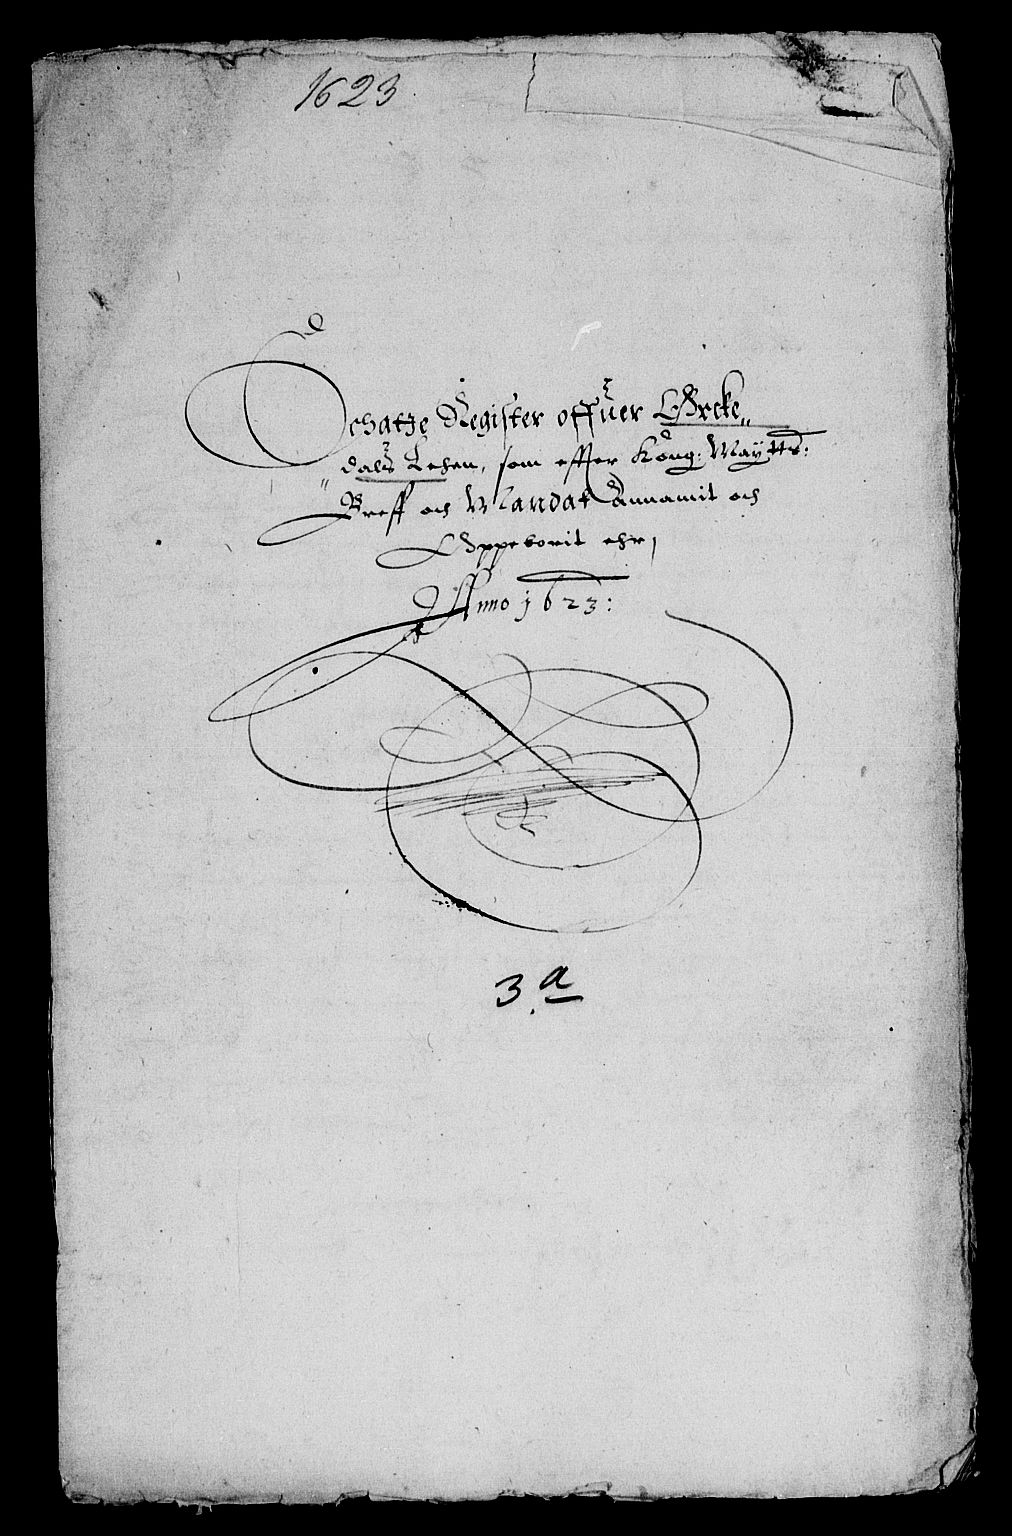 1623
Schatze Register offuer Orcke„
„dals Lehen, som effter Kong: Maytts:
Breff och Mandat Annamit och
Oppeborit ehr,
Anno 1623:
3.a